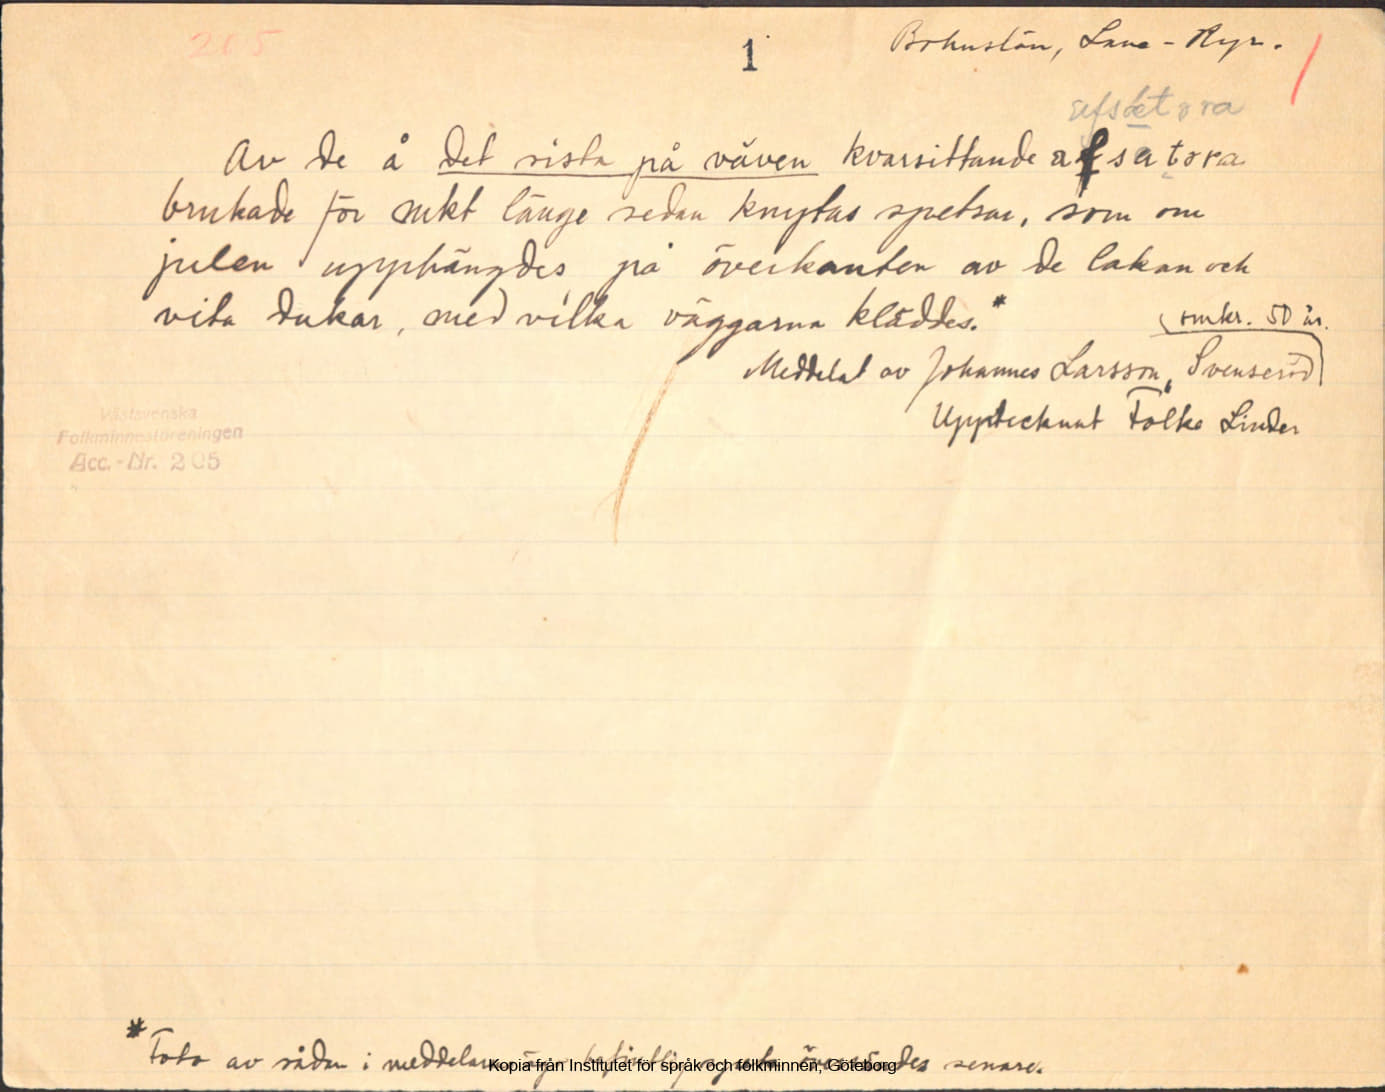 205
1
Bohuslän, Lane-Ryr.
Av de å det sista på väven kvarsittande afsatora
brukade för mkt länge sedan knytas spetsar, som om
julen upphängdes på överkanten av de lakan och
vita dukar, med vilka väggarna kläddes.*
omkr. 50 år.
Meddelat av Johannes Larsson, Svenseröd
Upptecknat Folke Linder
Västsvenska
Folkminnesföreningen
Acc.-Nr. 205
* Foto av sådan i meddelare ägo befintlig spets översändes senare.
Kopia från Institutet för språk och folkminnen, Göteborg